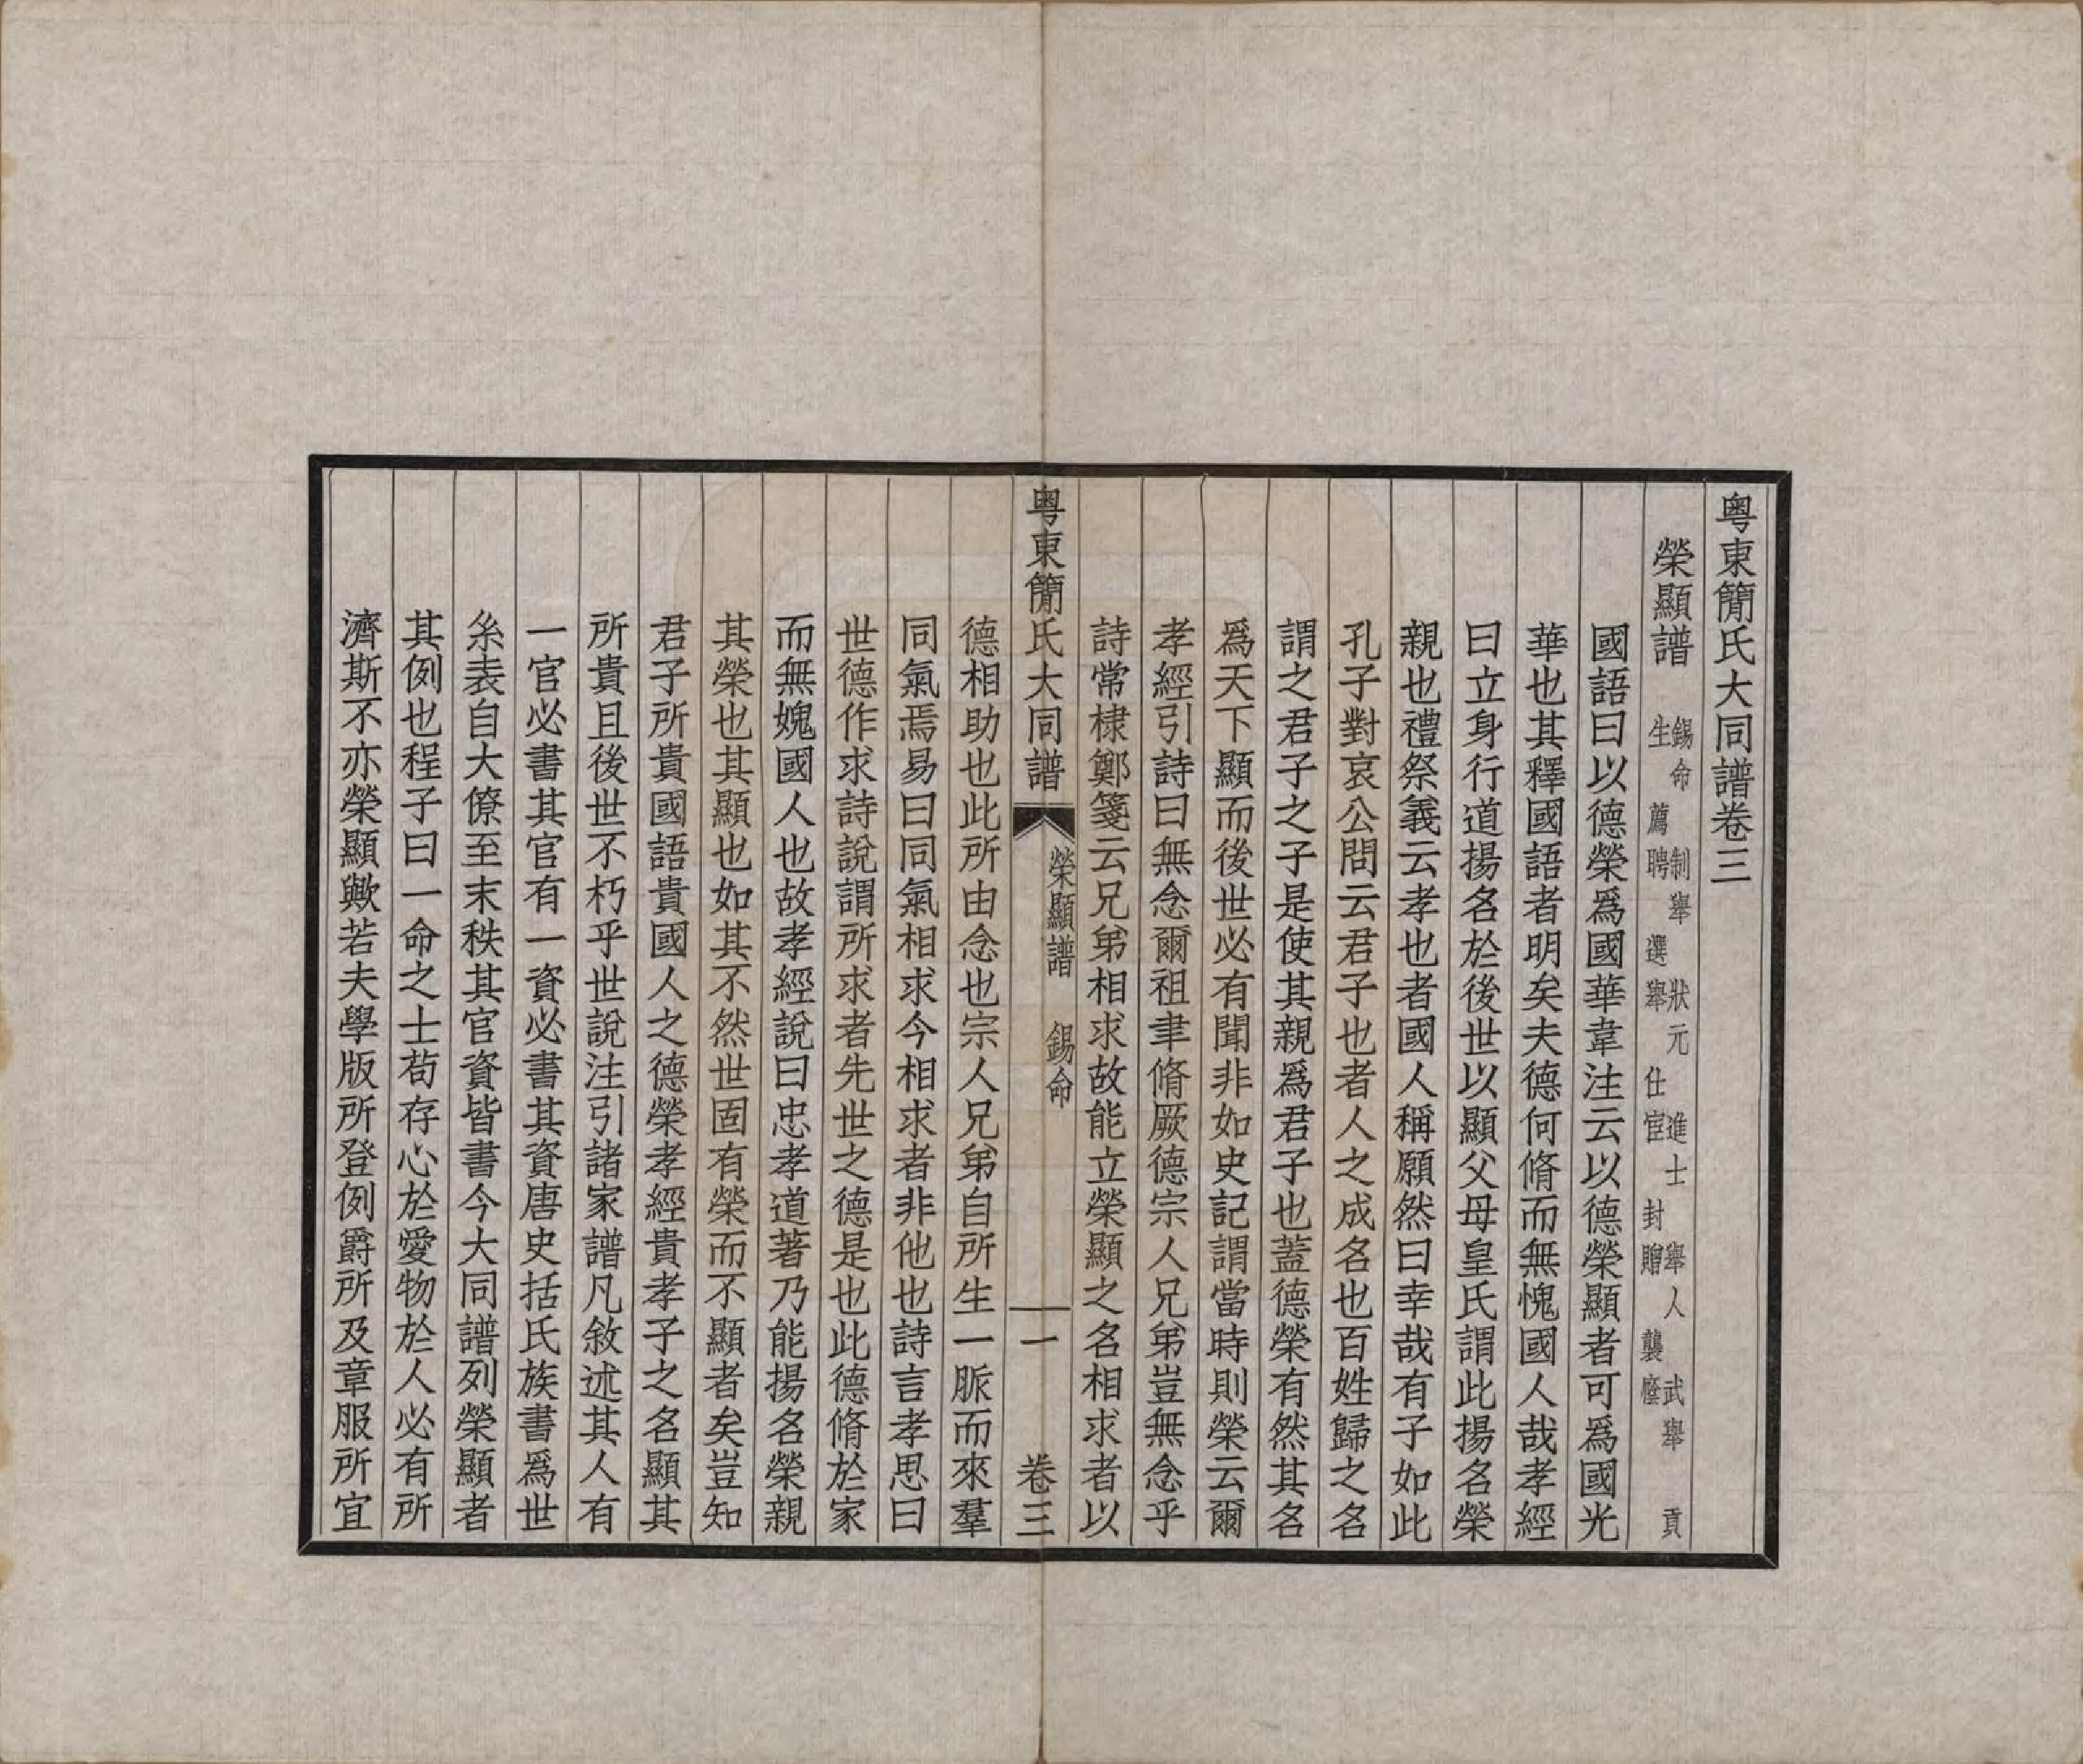 粤東簡氏大同譜卷三
榮顯譜 錫命 制舉 狀元 進士 舉人 武舉 貢
生 薦聘 選舉 仕宦 封贈 襲廕
國語曰以德榮爲國華韋注云以德榮顯者可爲國光
華也其釋國語者明矣夫德何脩而無愧國人哉孝經
曰立身行道揚名於後世以顯父母皇氏謂此揚名榮
親也禮祭義云孝也者國人稱願然曰幸哉有子如此
孔子對哀公問云君子也者人之成名也百姓歸之名
謂之君子之子是使其親爲君子也蓋德榮有然其名
爲天下顯而後世必有聞非如史記謂當時則榮云爾
孝經引詩曰無念爾祖聿脩厥德宗人兄弟豈無念乎
詩常棣鄭箋云兄弟相求故能立榮顯之名相求者以
粤東簡氏大同譜 榮顯譜 錫命 一 卷三
德相助也此所由念也宗人兄弟自所生一脈而來羣
同氣焉易曰同氣相求今相求者非他也詩言孝思曰
世德作求詩說謂所求者先世之德是也此德脩於家
而無媿國人也故孝經說曰忠孝道著乃能揚名榮親
其榮也其顯也如其不然世固有榮而不顯者矣豈知
君子所貴國語貴國人之德榮孝經貴孝子之名顯其
所貴且後世不朽乎世說注引諸家譜凡敘述其人有
一官必書其官有一資必書其資唐史括氏族書爲世
糸表自大僚至末秩其官資皆書今大同譜列榮顯者
其例也程子曰一命之士苟存心於愛物於人必有所
濟斯不亦榮顯歟若夫學版所登例爵所及章服所宜